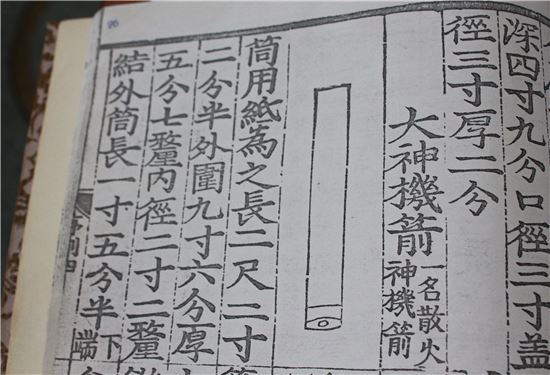 深四寸九分口徑三寸盖
徑三寸厚二分
大神機箭
一名散火
神機箭
筒用紙為之長二尺二寸
二分半外圍九寸六分厚
五分七釐内徑二寸二釐
結外筒長一寸五分半
下
端